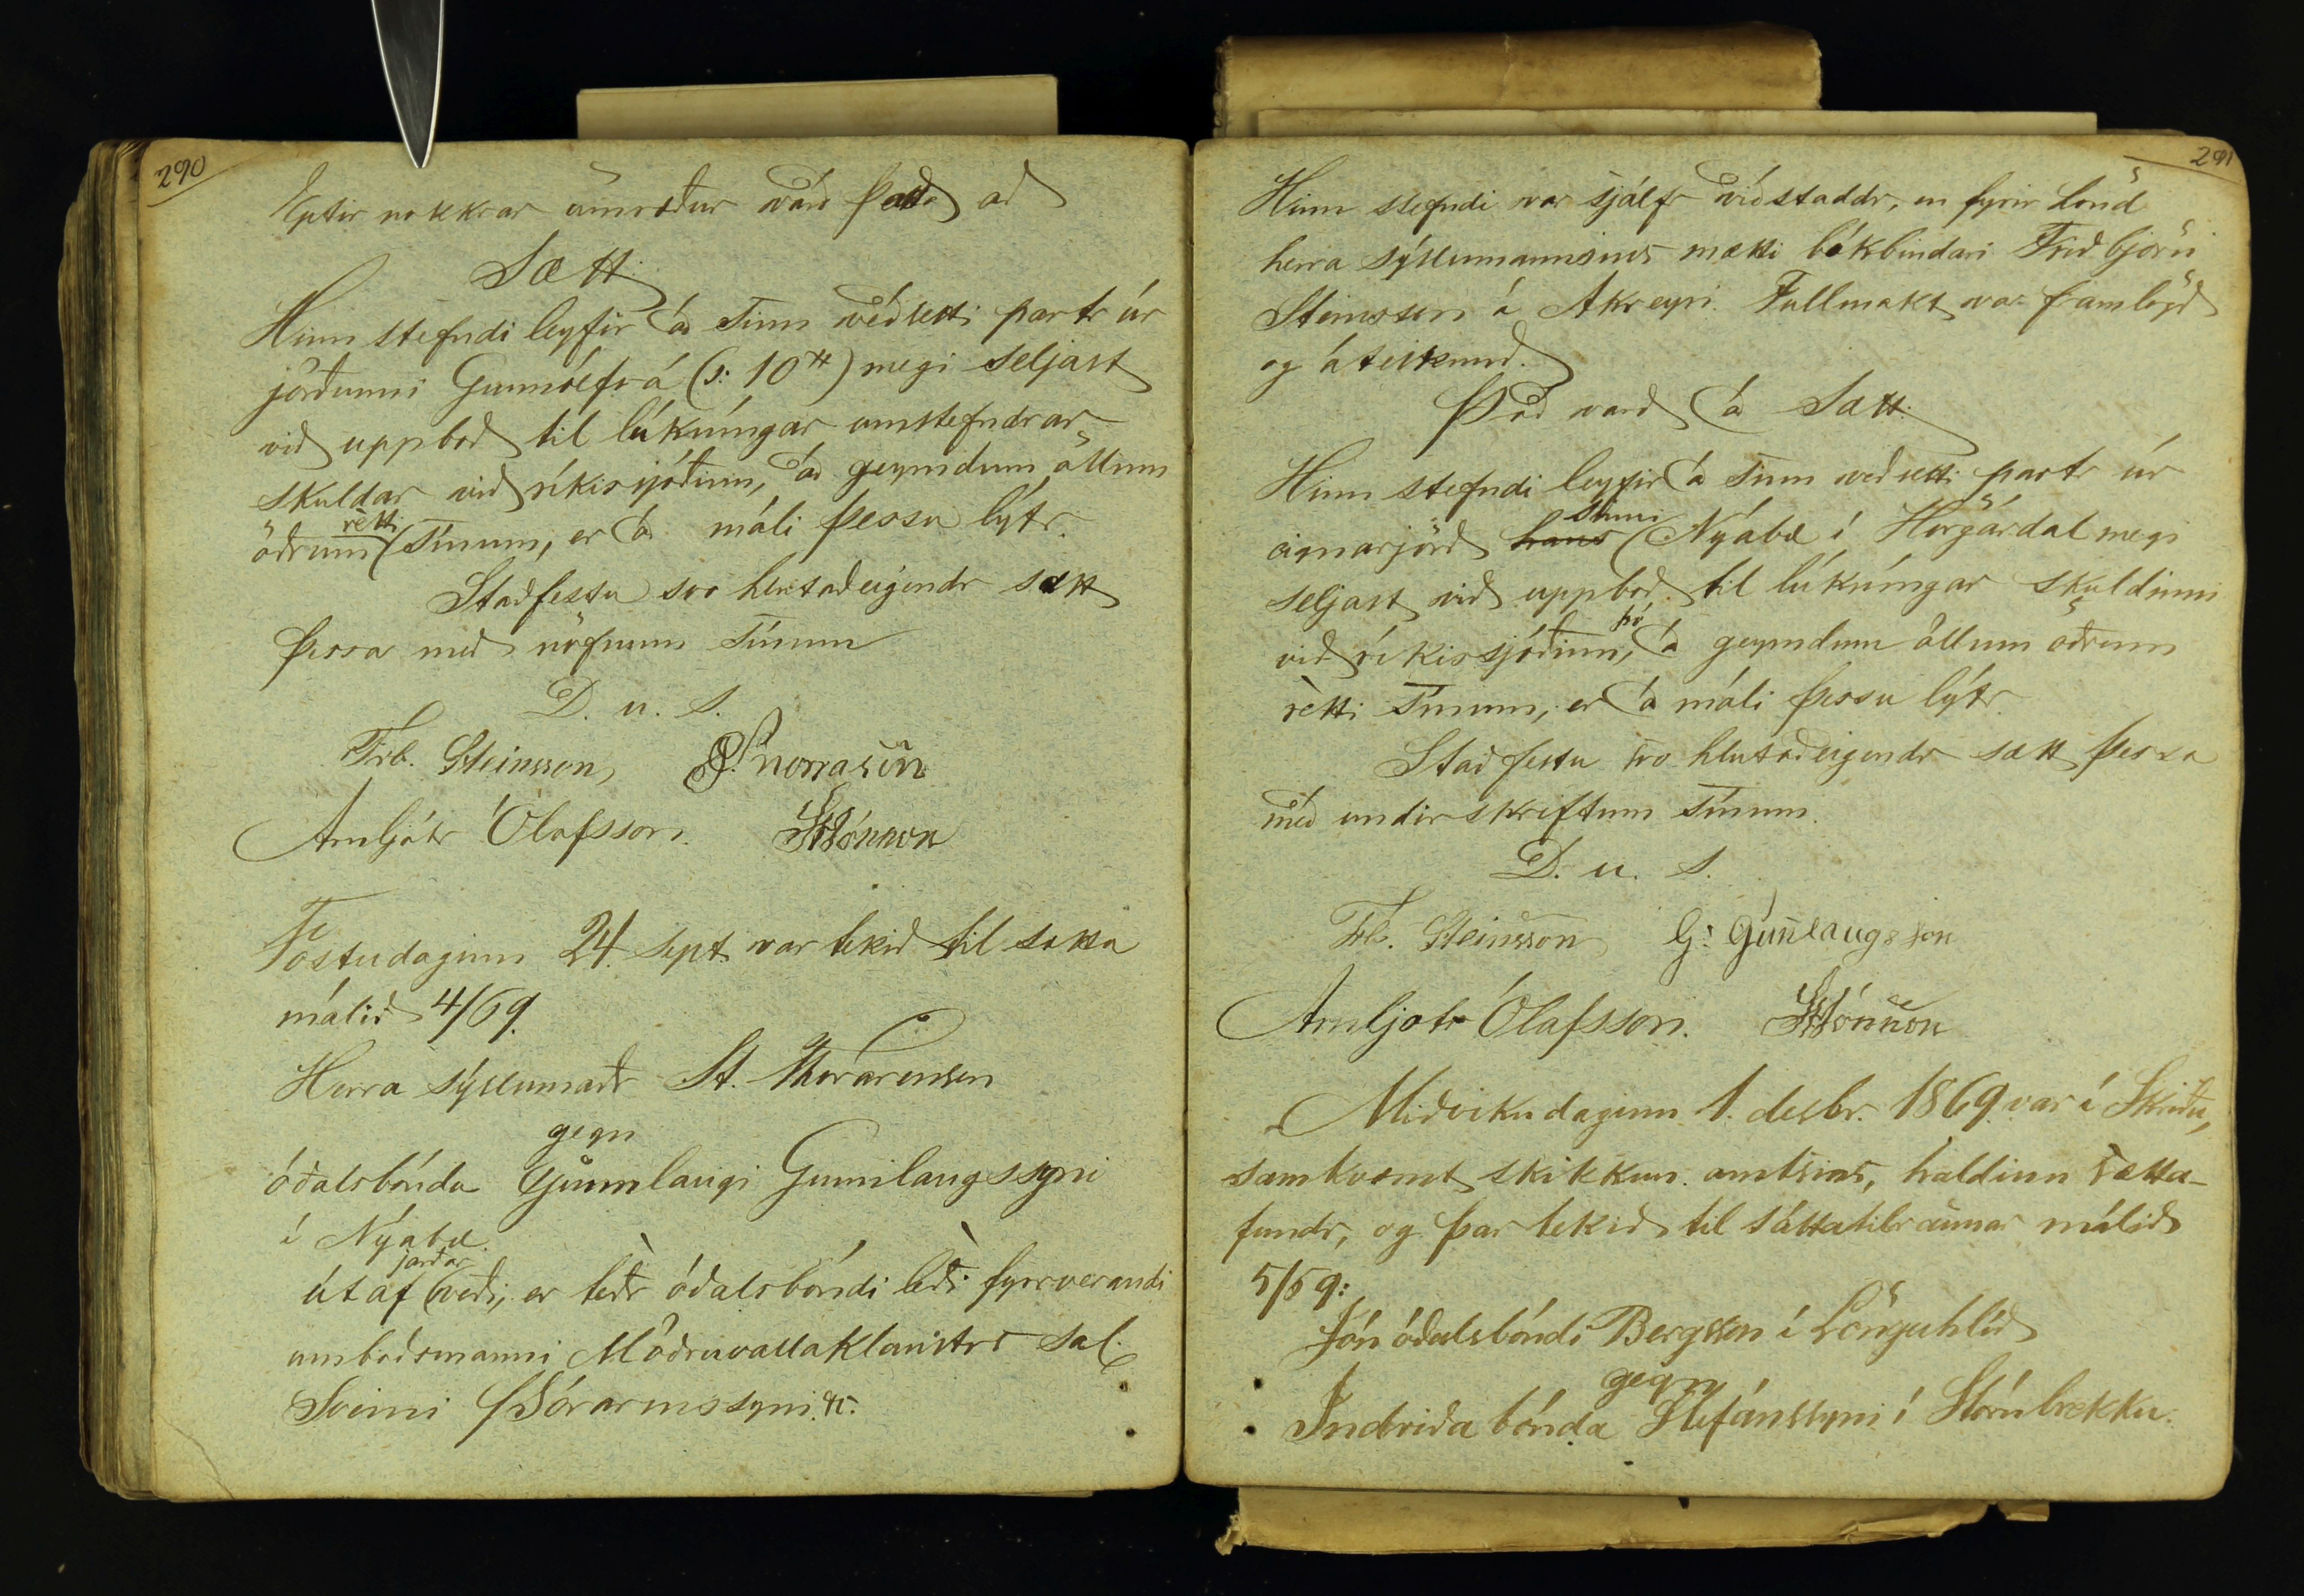 290
Eptir nokkrar umræður varð það að
Sætt:
Hinn stefndi leyfir að sinn veðsetti partr úr
jörðunni Gunnólfsá (ɔ: 10 #) megi seljast
við uppboð til lúkníngar umstefndrar
skuldar við ríkissjóðinn, að geymdum öllum
öðrum rètti sínum, er að máli þessu lýtr.
Staðfestu svo hlutaðeigendr sætt
þessa með nöfnum sínum
D. u. S.
Frb. Steinsson, Snorrason
Arnljótr Ólafsson. Jónsson
Föstudaginn 24. sept. var tekið til sátta
málið 4/69.
Herra sýslumaðr St. Thorarensen
gegn
óðalsbónda Gunnlaugi Gunnlaugssyni
í Nýabæ.
út af jarðarveði, er tèðr óðalsbóndi lèði fyrrverandi
umboðsmanni Möðruvallaklausturs sal.
Sveini Þórarinssyni &c.
291
Hinn stefndi var sjálfr viðstaddr, en fyrir hönd
herra sýslumannsins mætti bókbindari Friðbjörn
Steinsson á Akreyri. Fullmakt var framlögð
og áteiknuð.
Það varð að Sætt:
Hinn stefndi leyfir að sinn veðsetti partr úr
eignarjörð hans sinni Nýábæ í Hörgárdal megi
seljast við uppboð til lúkníngar skuldinni
við ríkissjóðinn, þó að geymdum öllum öðrum
rètti sínum, er að máli þessu lýtr.
Staðfestu svo hlutaðeigendr sætt þessa
með undirskriftum sínum.
D. u. S.
Frb. Steinsson G: Gunnlaugsson
Arnljotr Ólafsson. Jónsson
Miðvikudaginn 1. desbr. 1869 var í Skriðu,
samkvæmt skikkun amtsins, haldinn sætta-
fundr, og þar tekið til sáttatilraunar málið
5/69:
Jón óðalsbóndi Bergsson í Lönguhlíð
gegn
Indriða bónda Stefánssyni í Stórubrekku.